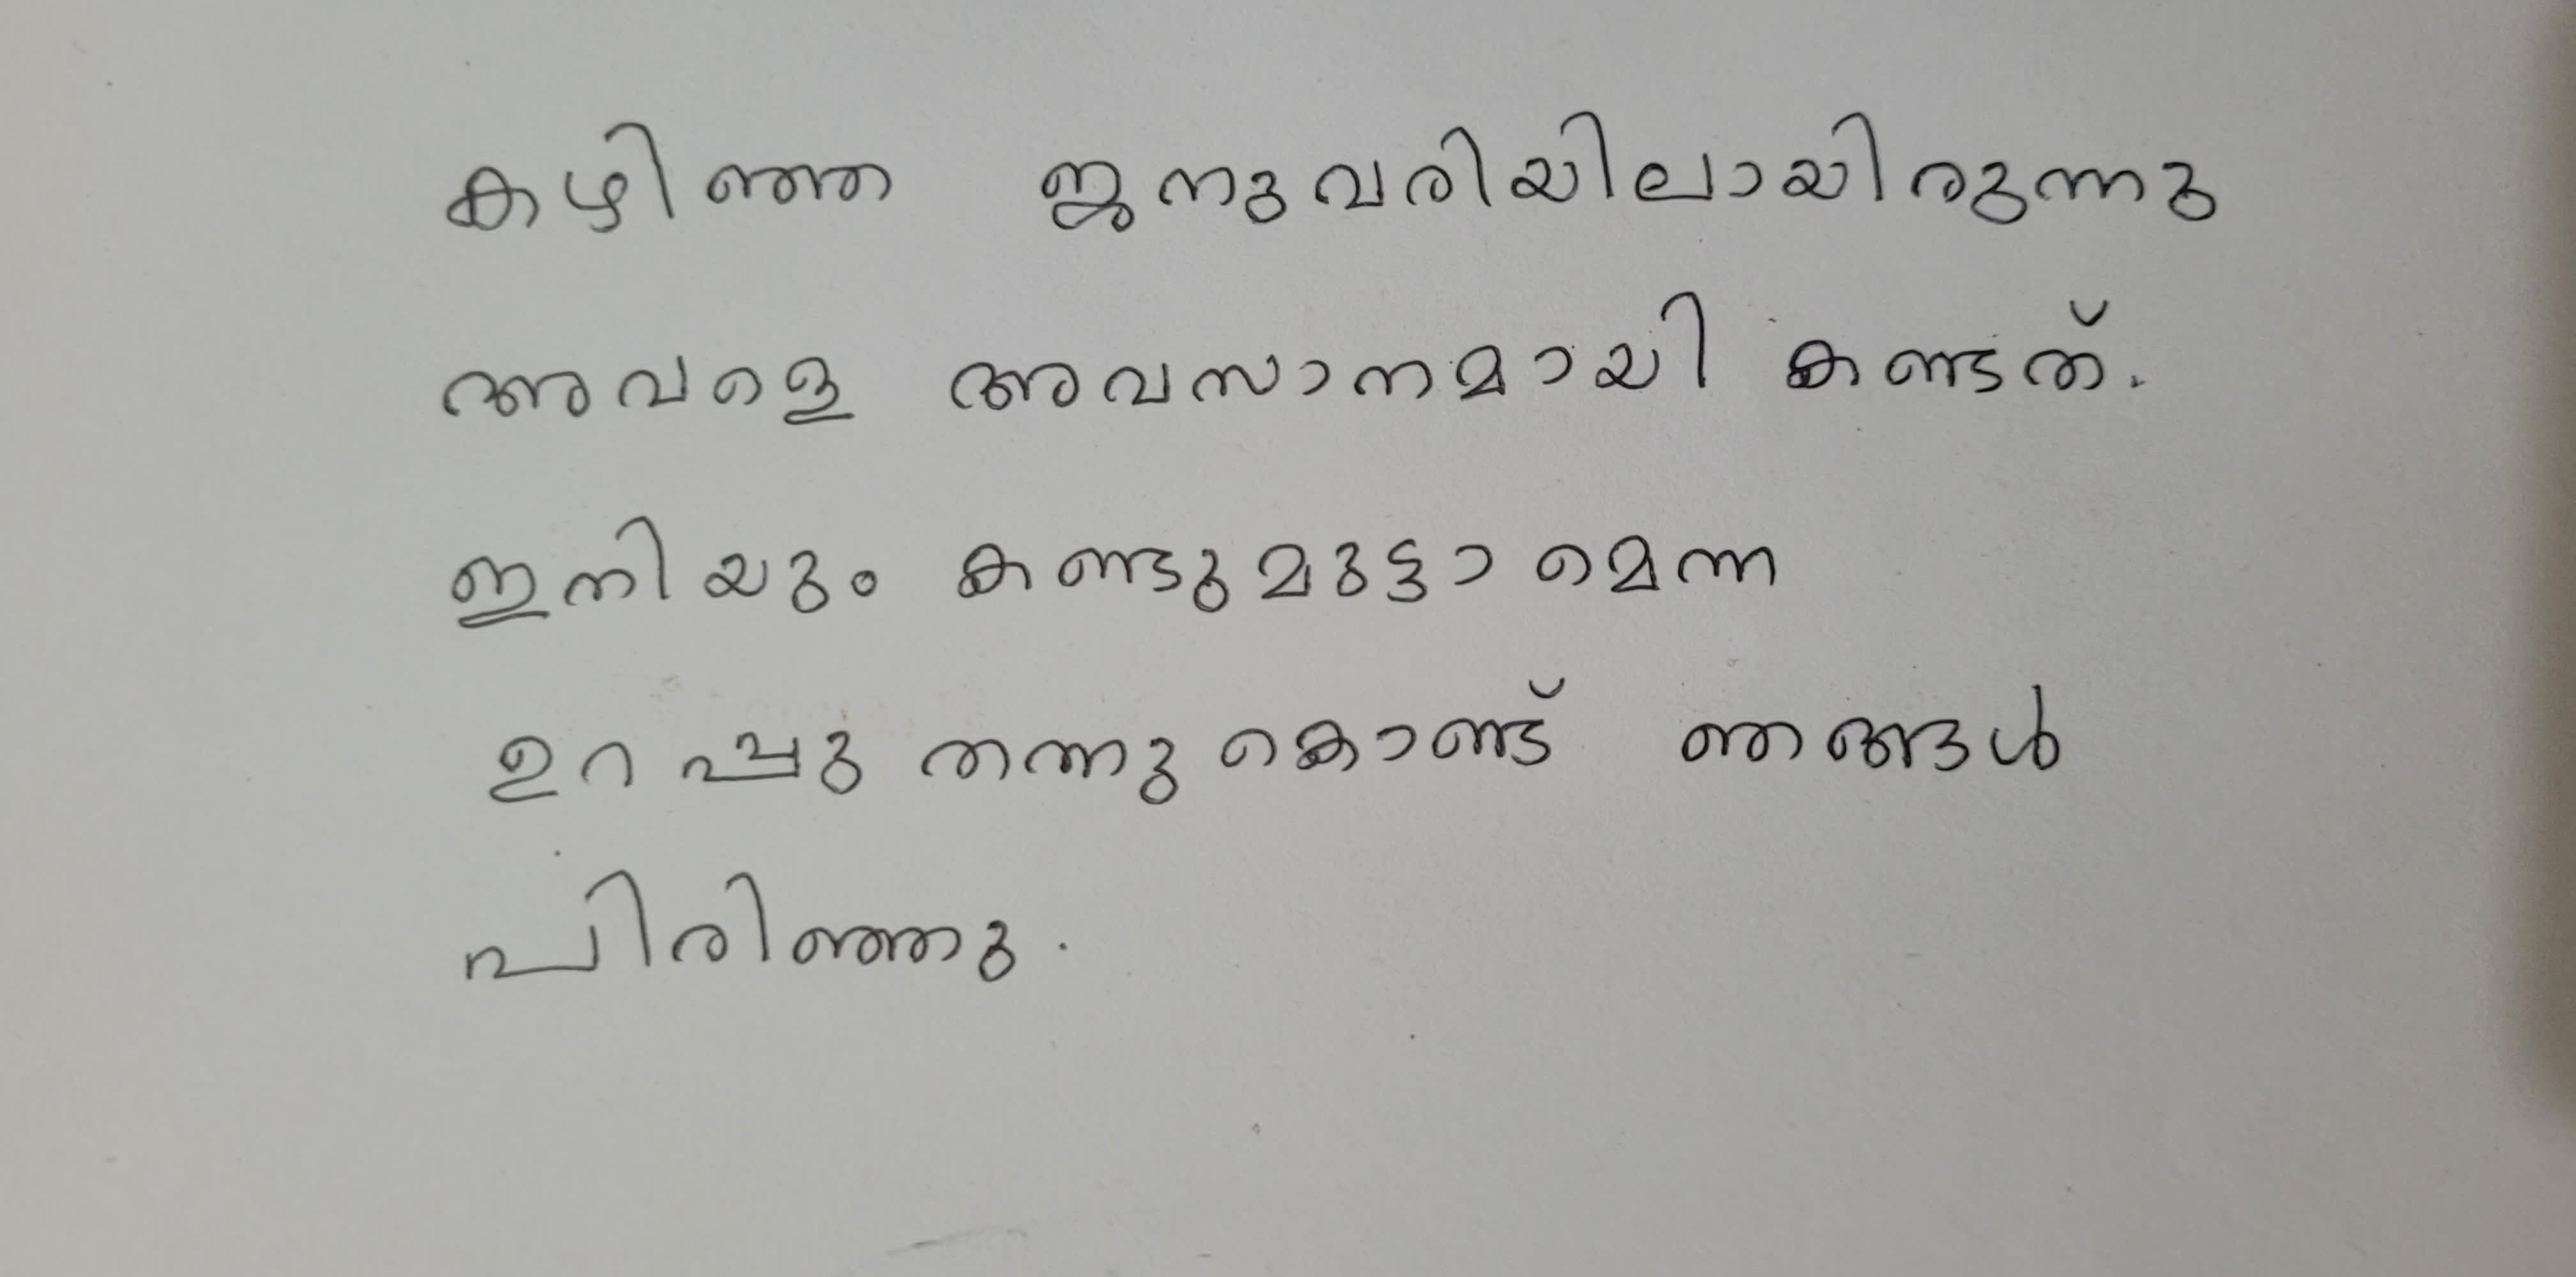 കഴിഞ്ഞ ജനുവരിയിലായിരുന്നു
അവളെ അവസാനമായി കണ്ടത്.
ഇനിയും കണ്ടുമുട്ടാമെന്ന
ഉറപ്പു തന്നുകൊണ്ട് ഞങ്ങൾ
പിരിഞ്ഞു.